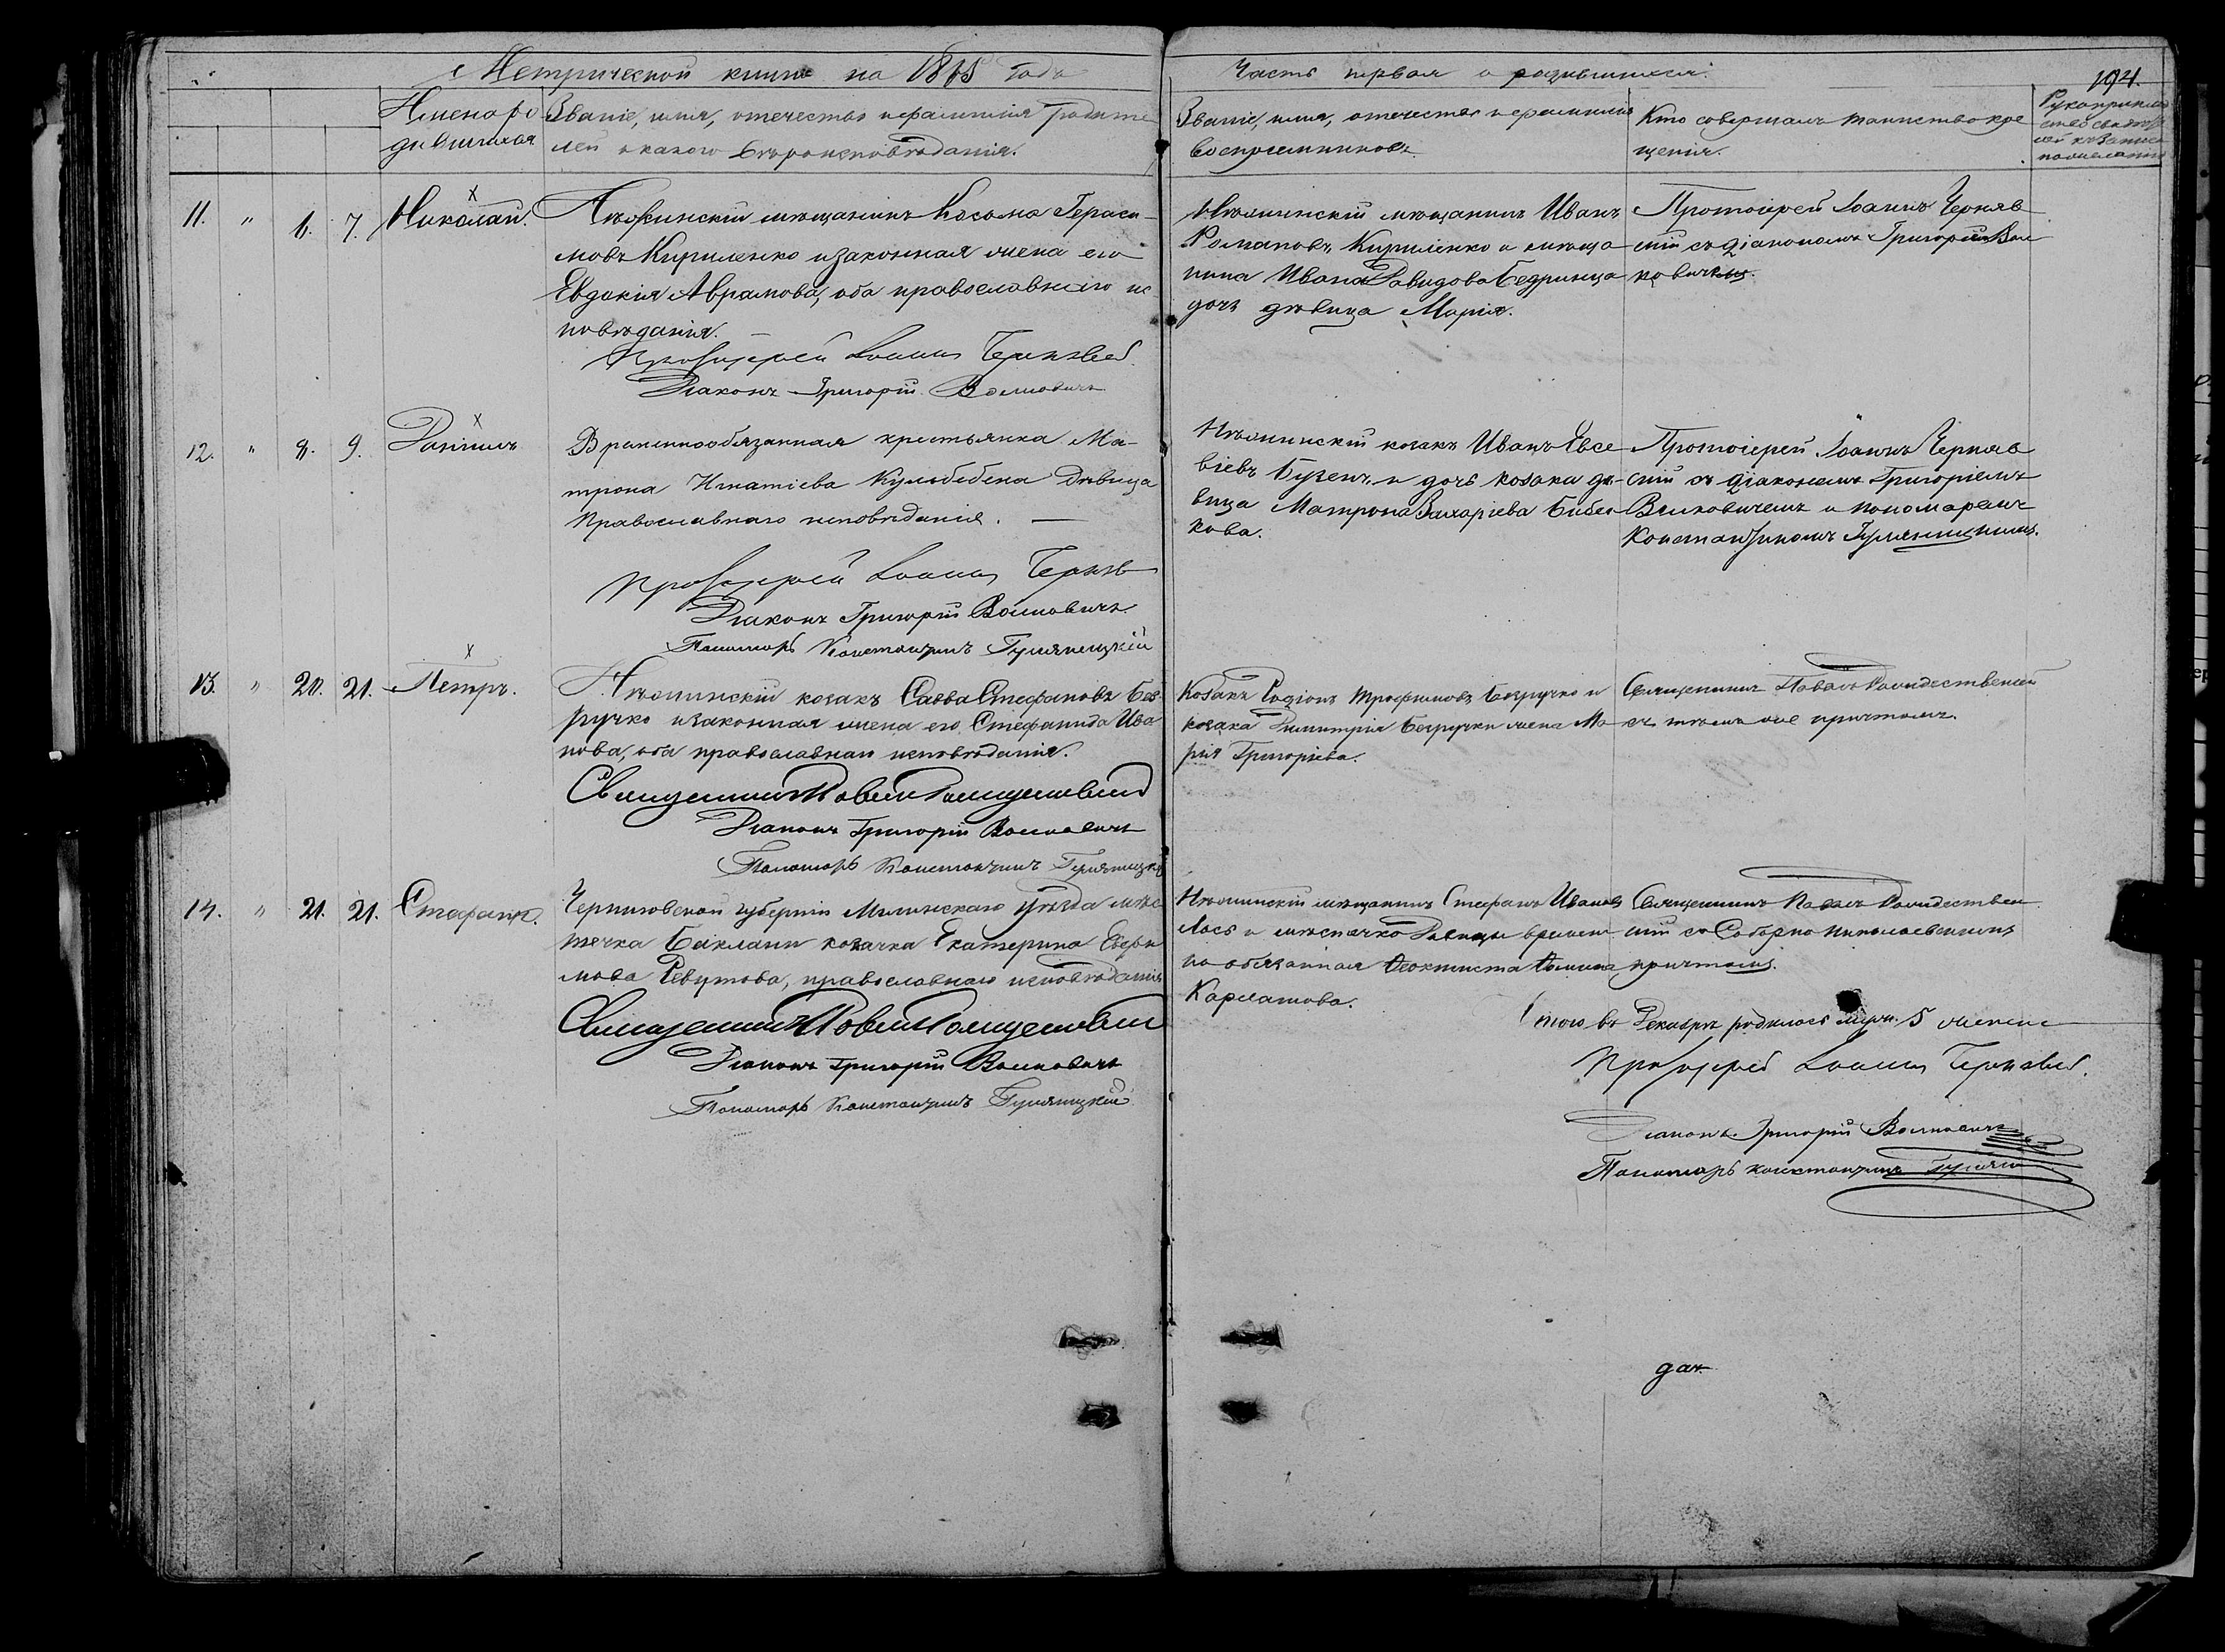 Метрической книги на 1865 года
Часть первая о родившихся.
194.
Имена ро
дившихся
Званіе, имя, отечество и фамилія родите
лей и какого вѣроисповѣданія.
Званіе, имя, отечество и фамилія
воспріемниковъ.
Кто совершалъ таинство кре
щенія.
Рукоприклад
ство свидѣте
лей
11. " 6. 7. Николай.
Нѣжинскій мѣщанинъ Косьма Гераси-
мовъ Кириленко и законная жена его
Евдокія Аврамова, оба православнаго ис
повѣданія.
Протоіерей Іоаннъ Чернявс
Діаконъ Григорій Волковичъ
Нѣжинскій мѣщанинъ Иванъ
Романовъ Кириленко и мѣща
нина Ивана Давидова Бедринца
дочь дѣвица Марія.
Протоіерей Іоаннъ Черняв
скій съ діакономъ Григоріемъ Вол
ковичемъ.
12. " 8. 9. Даніилъ
Временнообязанная крестьянка Ма-
трона Игнатіева Кульбебена дѣвица
православнаго исповѣданія. —
Протоіерей Іоаннъ Черняв
Діаконъ Григорій Волковичъ
Пономарь Константинъ
Нѣжинскій козакъ Иванъ Евсе
віевъ и дочь козака дѣ-
вица Матрона Захаріева Биби
кова.
Протоіерей Іоаннъ Черняв
скій съ діакономъ Григоріемъ
Волковичемъ и пономаремъ
Константиномъ
13. " 20. 21. Петръ.
Нѣжинскій козакъ Савва Стефановъ Без
ручко и законная жена его Стефанида Ива
нова, оба православнаго исповѣданія.
Священникъ Павелъ Рождественскій
Діаконъ Григорій Волковичъ
Пономарь Константинъ
Козакъ Родіонъ Трофимовъ Безручко и
козака Димитрія Безручки жена Ма
рія Григоріева.
Священникъ Павелъ Рождественскій
съ тѣмъ же причтомъ.
14. " 21. 21. Стефанъ.
Черниговской губерніи Мглинскаго уѣзда мѣс
течка Баклани козачка Екатерина Ефи
мова Ревутова, православнаго исповѣданія
Священникъ Павелъ Рождественскій
Діаконъ Григорій Волковичъ
Пономарь Константинъ
Нѣжинскій мѣщанинъ Стефанъ Ивановъ
Лось и мѣстечка временн
но обязанная Ѳеоктиста Ѳомина
Карпатова.
Священникъ Павелъ Рождествен
скій съ Соборно Николаевскимъ
причтомъ.
Итого въ Декабрѣ родилось муж. 5 женска
Протоіерей Іоаннъ Чернявс.
Діаконъ Григорій Волковичъ
Пономарь Константинъ